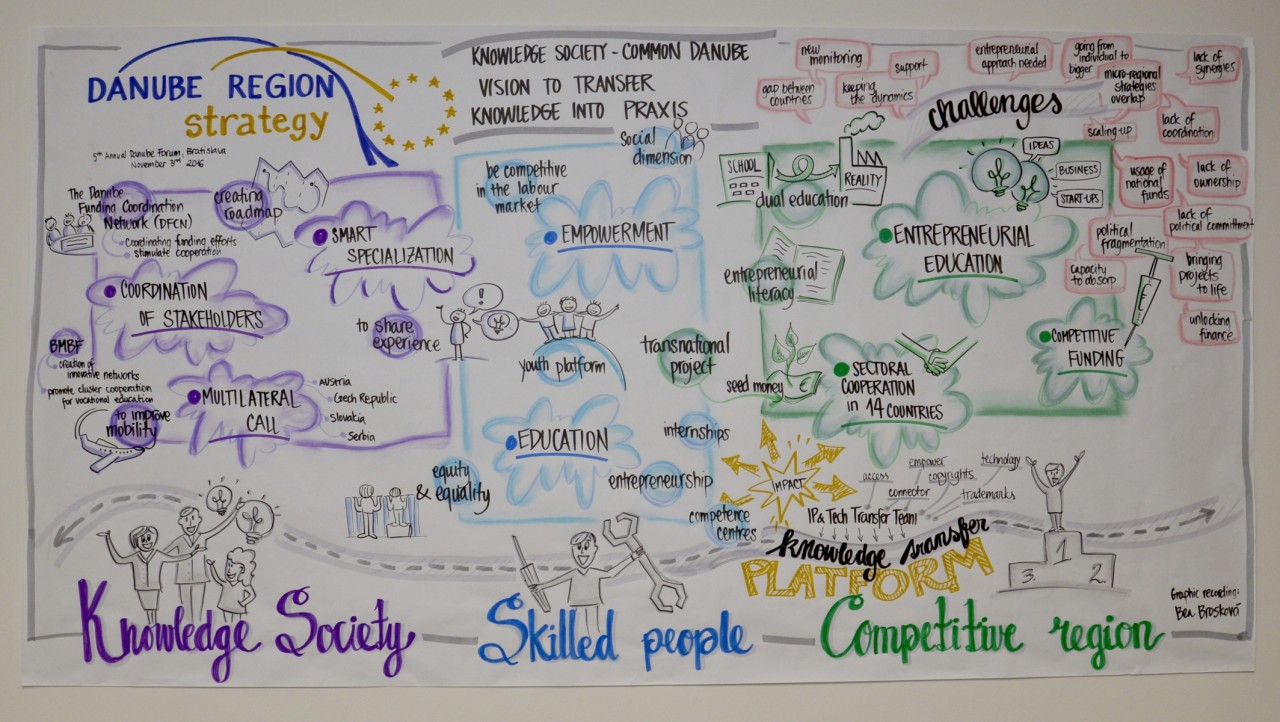 DANUBE REGION
strategy
5th Annual Danube Forum, Bratislava
November 3rd 2016
KNOWLEDGE SOCIETY - COMMON DANUBE
VISION TO TRANSFER
KNOWLEDGE INTO PRAXIS
The Danube
Funding Coordination
Network (DFCN)
Coordinating funding efforts
stimulate cooperation
creating
roadmap
SMART
SPECIALIZATION
COORDINATION
OF STAKEHOLDERS
to share
experience
BMBF
creation of
innovative networks
promote cluster cooperation
for vocational education
to improve
mobility
MULTILATERAL
CALL
AUSTRIA
Czech Republic
Slovakia
Serbia
Social
dimension
be competitive
in the labour
market
EMPOWERMENT
!
youth platform
EDUCATION
internships
entrepreneurship
equity
& equality
competence
centres
transnational
project
challenges
new
monitoring
support
gap between
countries
keeping
the dynamics
entrepreneurial
approach needed
going from
individual to
bigger
micro-regional
strategies
overlap
lack of
synergies
scaling-up
lack of
coordination
usage of
national
funds
lack of
ownership
lack of
political committment
political
fragmentation
capacity
to absorp
bringing
projects
to life
unlocking
finance
SCHOOL
REALITY
dual education
IDEAS
BUSINESS
START-UPS
ENTREPRENEURIAL
EDUCATION
entrepreneurial
literacy
seed money
SECTORAL
COOPERATION
in 14 COUNTRIES
COMPETITIVE
FUNDING
IMPACT
access
empower
copyrights
technology
connector
trademarks
IP & Tech Transfer Team
knowledge transfer
PLATFORM
1
2.
3.
Graphic recording:
Bea Brosková
Knowledge Society
Skilled people
Competitive region